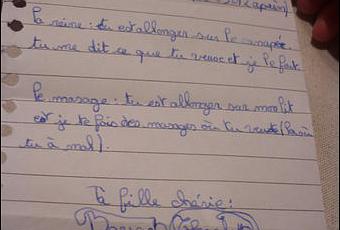 (apaisn)
la reine : tu est allonger sur le canapé.
tu me dit ce que tu veux et je le fait
le masage : tu est allonger sur mon lit
et je te fais des masages où tu veute (la où
tu à mal).
Ta fille chérie :